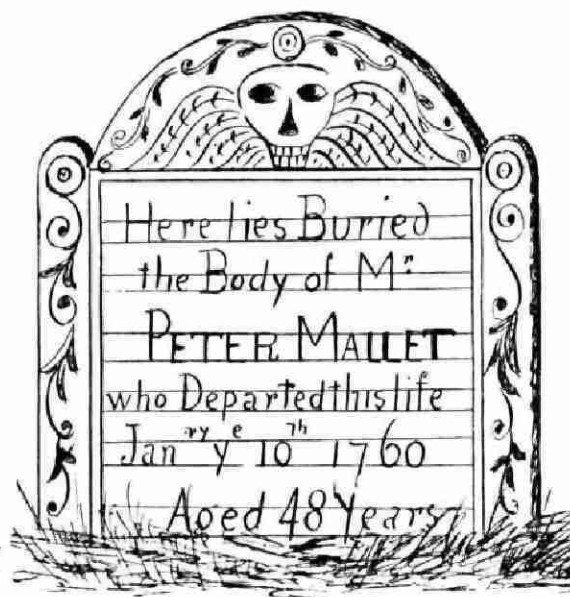 Here lies Buried
the Body of Mr
PETER MALLET
who Departed this life
Janry ye 10th 1760
Aged 48 Years